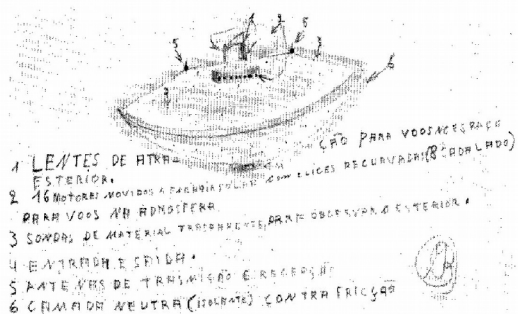 4 2 5
5 3
6
3
1 LENTES DE ATRA- ÇÃO PARA VOOS NO ESPAÇO
ESTERIOR.
2 16 MOTORES MOVIDOS A ENERGIA SOLAR COM ELICES RECURVADAS (8 ADA LADO)
PARA VOOS NA ADMOSFERA
3 SONDAS DE MATERIAL TRASPARENTE, PARA OBSERVAR O ESTERIOR.
4 ENTRADA E SAIDA.
5 ANTENAS DE TRASMIÇÃO E RECEPÇÃO
6 CAMADA NEUTRA (ISOLANTE) CONTRA FRICÇÃO